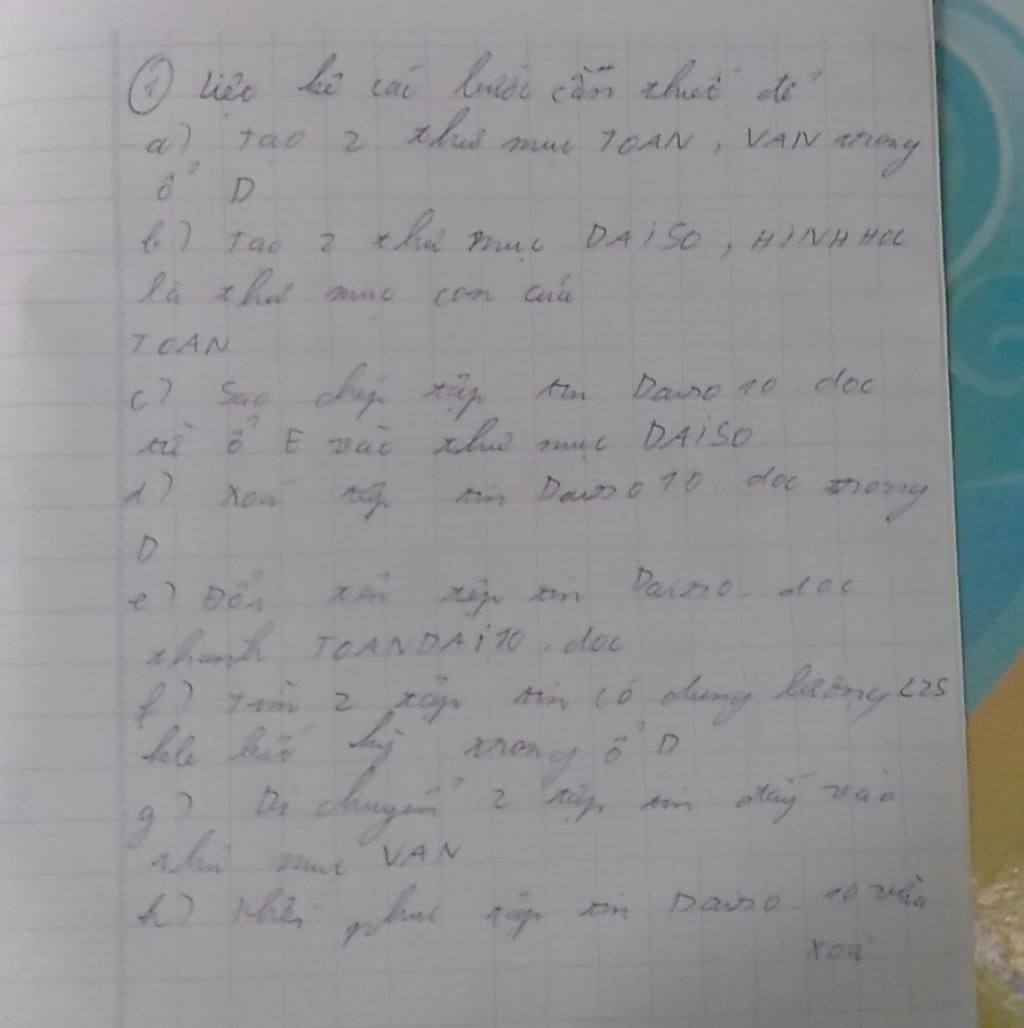 ① Liệt kê các bước cần thiết để
a) Tạo 2 thư mục TOAN, VAN trong
ổ D
b) Tạo 2 thư mục DAISO, HINHHOC
là thư mục con của
TOAN
c) Sao chép tập tin Daiso10.doc
từ ổ E vào thư mục DAISO
d) Xoá tập tin Daiso10.doc trong
D
e) Đổi tên tệp tin Daiso.doc
thanh TOANDAI10.doc
f) Tìm 2 tập tin có dung lượng <25
kb bất kỳ trong ổ D
g) Di chuyển 2 tập tin đấy vào
thư mục VAN
h) Khôi phục tập tin Daiso.10 vừa
xoá